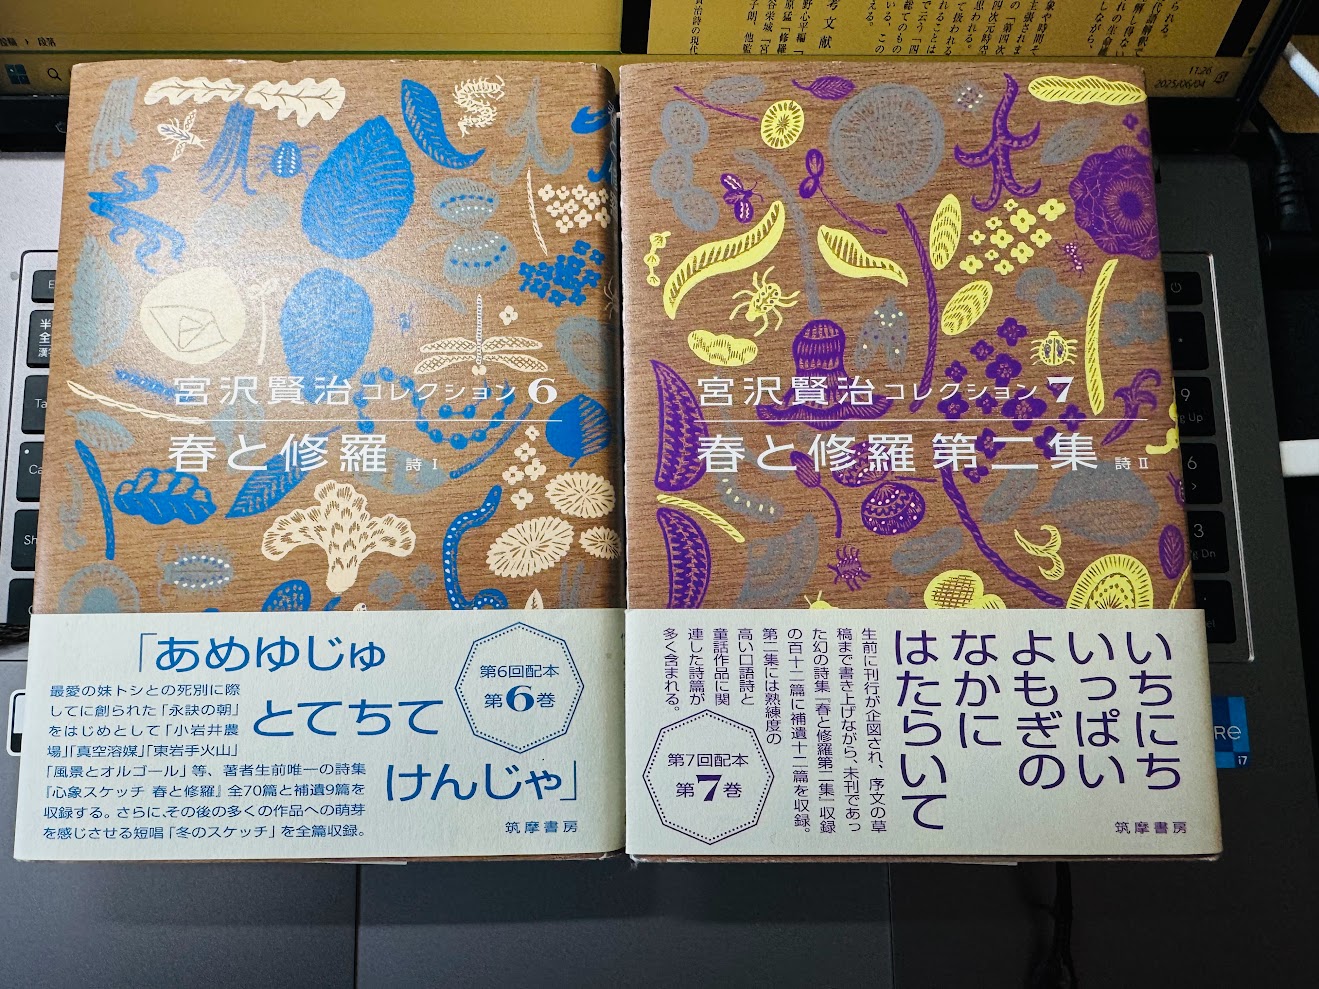 投稿 › 段落
考文献
11:26
2025/06/04
半
全
漢
宮沢賢治コレクション 6
春と修羅 詩Ⅰ
「あめゆじゅ
とてちて
けんじゃ」
第6回配本
第6巻
最愛の妹トシとの死別に際
してに創られた「永訣の朝」
をはじめとして「小岩井農
場」「真空溶媒」「東岩手火山」
「風景とオルゴール」等、著者生前唯一の詩集
『心象スケッチ 春と修羅』全70篇と補遺9篇を
収録する。さらに、その後の多くの作品への萌芽
を感じさせる短唱「冬のスケッチ」を全篇収録。
筑摩書房
宮沢賢治コレクション 7
春と修羅 第二集 詩Ⅱ
いちにち
いっぱい
よもぎの
なかに
はたらいて
生前に刊行が企図され、序文の草
稿まで書き上げながら、未刊であっ
た幻の詩集『春と修羅第二集』収録
の百十二篇に補遺十二篇を収録。
第二集には熟練度の
高い口語詩と
童話作品に関
連した詩篇が
多く含まれる。
第7回配本
第7巻
筑摩書房
9
6
3
i7